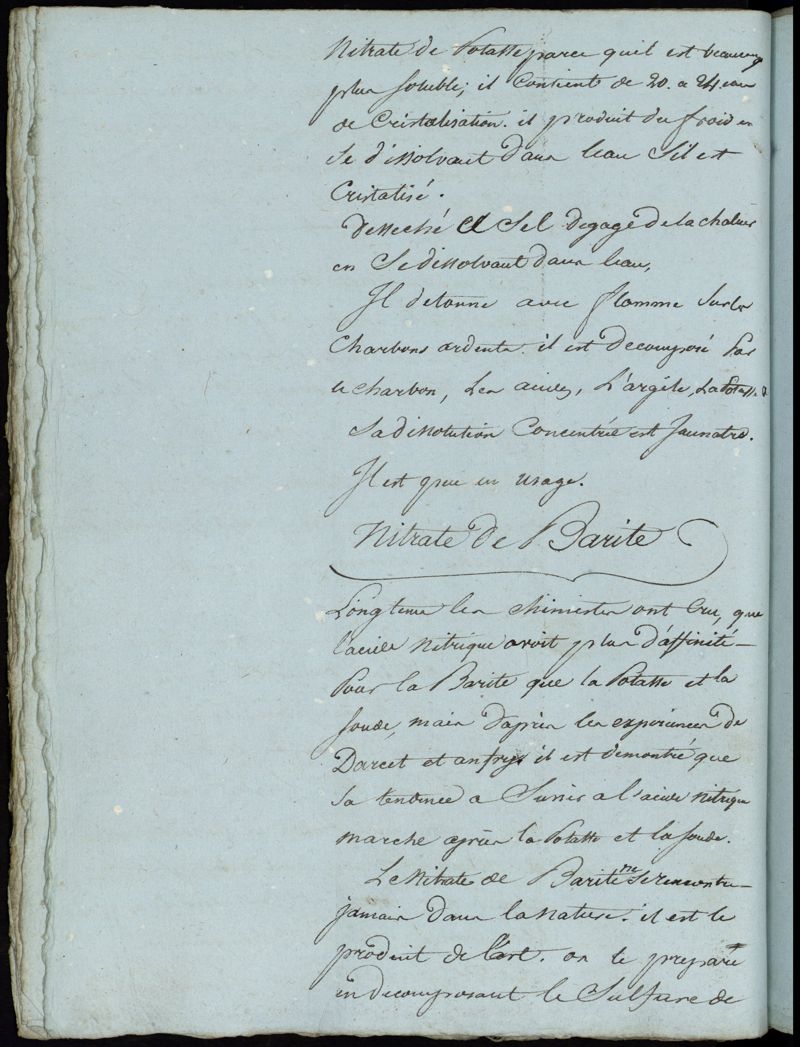 Nitrate de Potasse parce quil est beaucoup
plus soluble; il contient de 20. a 24 eau
de Cristalisation. il produit du froid en
se dissolvant dans leau Sil est
Cristalisé.
Desseché ce Sel degage de la chaleur
en Se dissolvant dans leau,
Il detonne avec flamme Sur les
Charbons ardents. il est decomposé Par
le charbon, Les acides, L'argile, La Potasse
Sa dissolution Concentrée est Jaunatre.
Il est peu en usage.
Nitrate de Barite
Longtems les chimistes ont Cru, que
l'acide nitrique avoit plus d'affinité
Pour la Barite que la Potasse et la
soude, mais d'après les experiences de
Darcet et anfrye il est demontré que
sa tendence a S'unir a l'acide nitrique
marche après la Potasse et la soude.
Le Nitrate de Barite ne Se rencontre
jamais dans la nature. il est le
produit de l'art. on le prepare
en decomposant le Sulfure de